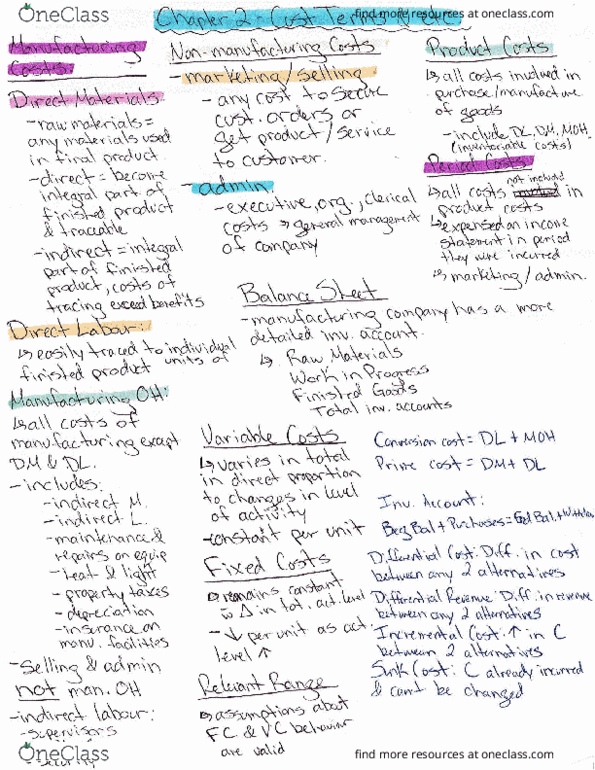 OneClass
find more resources at oneclass.com
Chapter 2 - Cost Term
Manufacturing
Costs
Direct Materials
- raw materials =
any materials used
in final product.
- direct = become
integral part of
finished product
& traceable
- indirect = integral
part of finished
product, costs of
tracing exceed benefits
Direct Labour:
↳ easily traced to individual
finished product units of
Manufacturing OH:
↳ all costs of
manufacturing except
DM & DL.
- includes:
- indirect M.
- indirect L.
- maintenance &
repairs on equip
- heat & light
- property taxes
- depreciation
- insurance on
manu. facilities
- Selling & admin
not man. OH
- indirect labour:
- supervisors
Non-manufacturing Costs
- marketing/selling
- any cost to secure
cust. orders or
get product/service
to customer.
- admin
- executive, org., clerical
costs ⇒ general management
of company
Product Costs
↳ all costs involved in
purchase/manufacture
of goods
- include DL, DM, MOH
(inventoriable costs)
Period Costs
↳ all costs not included in
product costs
↳ expensed on income
statement in period
they were incurred
↳ marketing/admin.
Balance Sheet
- manufacturing company has a more
detailed inv. account.
↳ Raw Materials
Work in Progress
Finished Goods
Total inv. accounts
Variable Costs
↳ varies in total
in direct proportion
to changes in level
of activity
- constant per unit
Fixed Costs
↳ remains constant
w̄ Δ in tot. act. level
- ↓ per unit as act.
level ↑
Relevant Range
↳ assumptions about
FC & VC behavior
are valid
Conversion cost = DL + MOH
Prime cost = DM + DL
Inv. Account:
Beg Bal + Purchases = End Bal. +
Differential Cost: Diff. in cost
between any 2 alternatives
Differential Revenue: Diff. in revenue
between any 2 alternatives
Incremental Cost: ↑ in C
between 2 alternatives
Sunk Cost: C already incurred
& can't be changed
OneClass
find more resources at oneclass.com